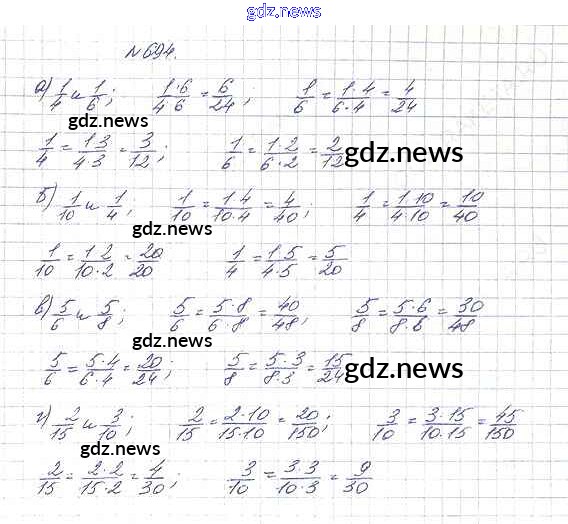 gdz.news
№694.
а) 1/4 и 1/6; 1·6/4·6 = 6/24; 1/6 = 1·4/6·4 = 4/24
gdz.news
1/4 = 1·3/4·3 = 3/12; 1/6 = 1·2/6·2 = 2/12 gdz.news
б) 1/10 и 1/4; 1/10 = 1·4/10·4 = 4/40; 1/4 = 1·10/4·10 = 10/40
gdz.news
1/10 = 1·2/10·2 = 20/20 1/4 = 1·5/4·5 = 5/20
в) 5/6 и 5/8; 5/6 = 5·8/6·8 = 40/48; 5/8 = 5·6/8·6 = 30/48
gdz.news
5/6 = 5·4/6·4 = 20/24; 5/8 = 5·3/8·3 = 15/24 gdz.news
г) 2/15 и 3/10; 2/15 = 2·10/15·10 = 20/150; 3/10 = 3·15/10·15 = 45/150
gdz.news
2/15 = 2·2/15·2 = 4/30; 3/10 = 3·3/10·3 = 9/30